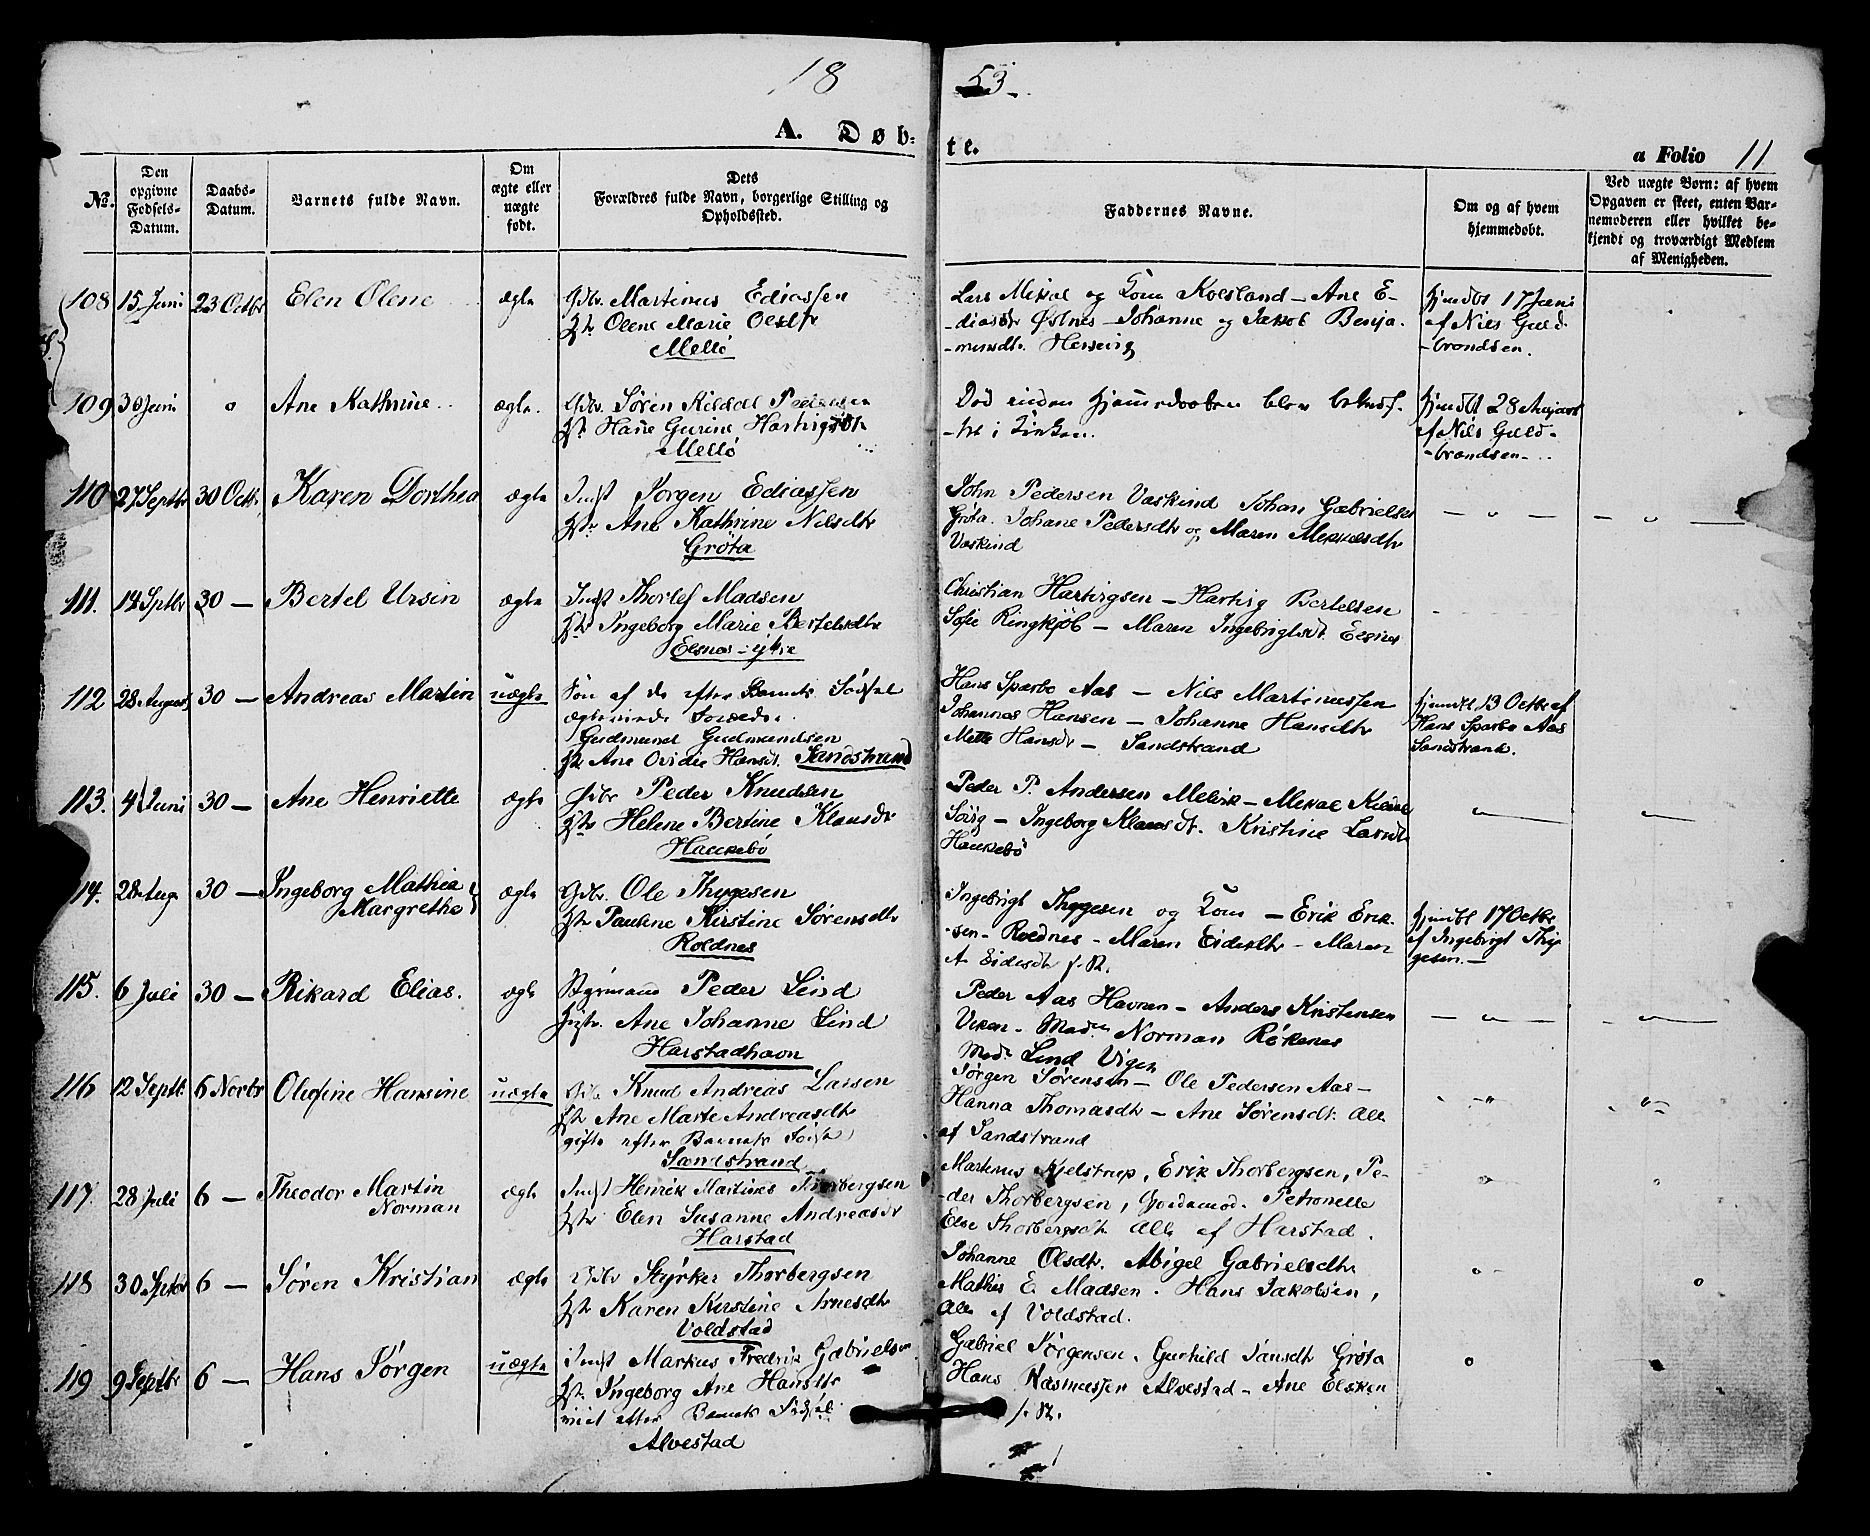 18 53.
A. Døb- te.
a Folio 11
No.
Den opgivne Fødsels-Datum.
Daabs-Datum.
Barnets fulde Navn.
Om ægte eller uægte født.
Dets Forældres fulde Navn, borgerlige Stilling og Opholdssted.
Faddernes Navne.
Om og af hvem hjemmedøbt.
Ved uægte Børn: af hvem Opgaven er skeet, enten Barnemoderen eller hvilket bekjendt og troværdigt Medlem af Menigheden.
108 15 Juni 23 Octbr Elen Olene ægte
Gdbr. Martinus Ediassen
Hst. Olene Marie Olsdtr
Mellö
Lars Mikal og Kone Kolsland - Ane E-
-diasdtr Östnes - Johanne og Jakob Benja-
-minsdtr.
hjemdbt 17 Juni
af Nils Guld-
-brandsen.
109 30 Juni Ane Kathrine ægte.
Gdbr. Søren Kildal Pedersen
Hst. Hane Gurine Hartvigsdtr
Mellö
Död inden Hjemmedaaben blev bekræf-
-tet i Kirken.
hjemdbt 28
af Nils Guld-
-brandsen
110 27 Septbr 30 Octbr Karen Dorthea ægte
Inst Jørgen Ediassen
Hst. Ane Kathrine Nilsdtr
Gröta
John Pedersen Vaskind Johan Gabrielsen
Gröta. Johane Pedersdtr og Maren Mikkelsdtr
Vaskind
111. 14 Sptbr 30 - Bertel Ursin ægte
Inst Thorlef Madsen
Hst Ingeborg Marie Bertelsdtr
Elsnes
Christian Hartvigsen - Hartvig Bertelsen
Sofie Ringkjöb - Maren Ingebrigtsdt. Elsnes
112 28 August 30 - Andreas Martin uægte
Søn af de efter Barnets Födsel
ægteviede Forældre.
Gudmund Gudmundsen
Hst Ane Hansdt. Sandstrand
Hans Sparbo Aas - Nils Martinussen
Johannes Hansen - Johanne Hansdtr
Mette Hansdtr - Sandstrand
hjemdbt. 13 Octbr af
Hans Sparbo Aas
Sandstrand.
113. 4 Juni 30 - Ane Henriette ægte
Gdbr Peder Knudsen
Hst Helene Bertine Klausdtr
Haukebö
Peder P. Andersen Melvik - Mikal
Sörg - Ingeborg Klausdt. Kristine
Haukebö
114. 28 Aug 30 - Ingeborg Mathea
Margrethe ægte
Gdbr. Ole Thygesen
Hst Pauline Kirstine Sørensdtr
Roldnes
Ingebrigt Thygesen og Kone - Erik Erik-
-sen - Roldnes - Maren Eidesdtr - Maren
A. Eidesdtr f. St.
hjemdbt 17 Octbr
af Ingebrigt Thy-
gesen. -
115. 6 Juli 30 - Rikard Elias. ægte
Styrmand Peder Lind
Hustr. Ane Johanne Lind
Harstadhavn
Peder Aas Havnen - Anders Kristensen
Viken - Mad. Norman Rökenes
Mad. Lind Vigen
116 12 Septb. 6 Novbr Olufine Hansine uægte
Gdbr Knud Andreas Larsen
Hst Ane Marte Andreasdtr
gifte efter Barnets Födsel
Sandstrand
Jørgen Sørensen - Ole Pedersen Aas -
Hanna Thomasdtr - Ane Sørensdt. Alle
af Sandstrand
117. 28 Juli 6 - Theodor Martin
Norman ægte
Inst Henrik Martinus Thorbergsen
Hst Elen Susanne Andreasdtr
Harstad
Martinus Kjelstrup, Erik Thorbergsen, Pe-
-der Thorbergsen, Jordemod. Petronelle
Else Thorbergsdtr Alle af Harstad.
118 30 Sptbr 6 - Søren Kristian ægte
Gdbr Styrker Thorbergsen
Hst Karen Kirstine Arnesdtr
Voldstad
Johanne Olsdtr. Abigel Gabrielsdtr
Mathis E. Madsen. Hans Jakobsen,
Alle af Voldstad.
119 9 Septbr 6 - Hans Jørgen uægte
Inst Markus Fredrik Gabrielsen
Hst. Ingeborg Ane Hansdtr
viet efter Barnets Födsel
Alvestad
Gabriel Jørgensen. Gunhild Jansdtr Gröta
Hans Rasmussen Alvestad - Ane
f. St.